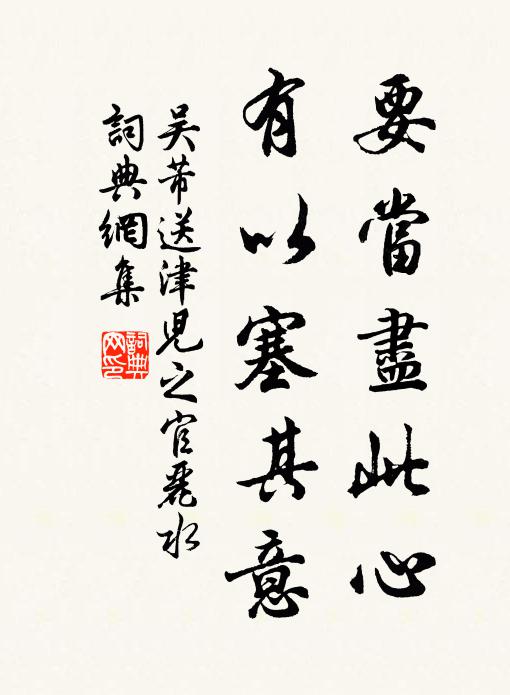 要當盡此心
有以塞其意
吳芾送津兒之官麗水
詞典網集
詞典
网印